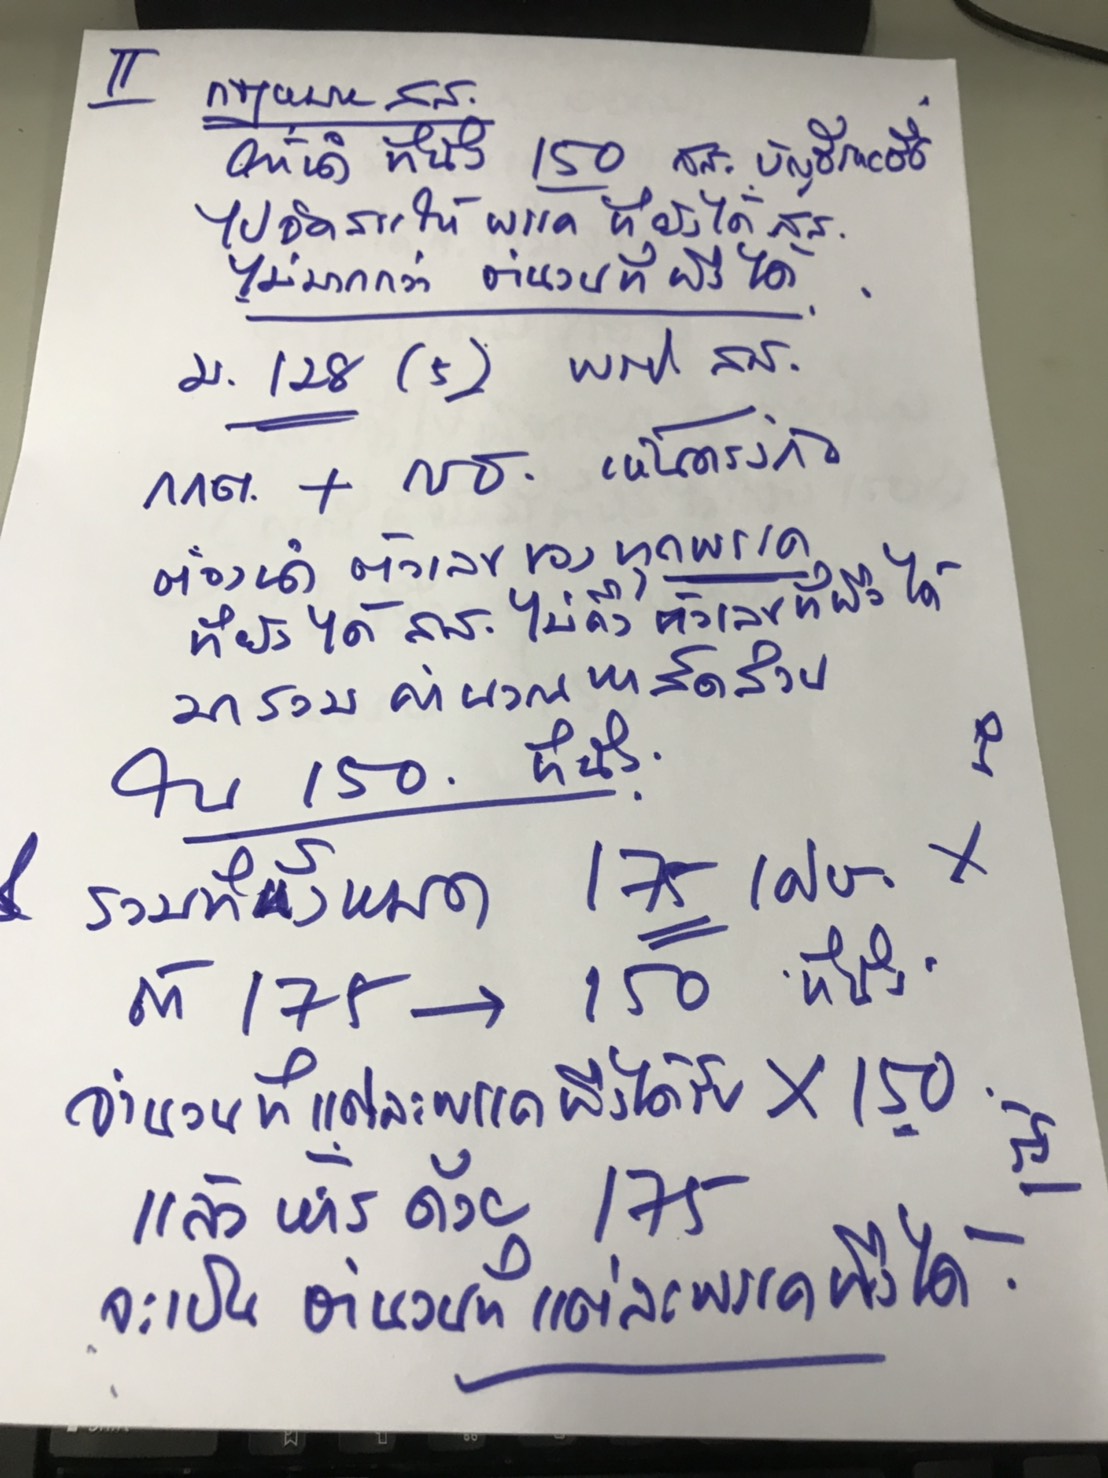 II
กฎหมาย สส.
ให้นำ ที่นั่ง 150 สส. บัญชีรายชื่อ
ไปจัดสรรให้ พรรค ที่ยังได้ สส.
ไม่มากกว่า จำนวนที่ พึงได้.
ม. 128 (5) พรป สส.
กกต. + กรธ. เห็นตรงกัน
ต้องนำ ตัวเลข ของ ทุกพรรค
ที่ยังได้ สส. ไม่ถึง ตัวเลขที่พึงได้
มารวม คำนวณ หาสัดส่วน
ใน 150. ที่นั่ง.
รวมที่นั่งหมด 175 เศษ. X
ถ้า 175 → 150 ที่นั่ง.
จำนวนที่แต่ละพรรคพึงได้รับ X 150.
แล้ว หาร ด้วย 175
จะเป็น จำนวนที่ แต่ละพรรค พึงได้.